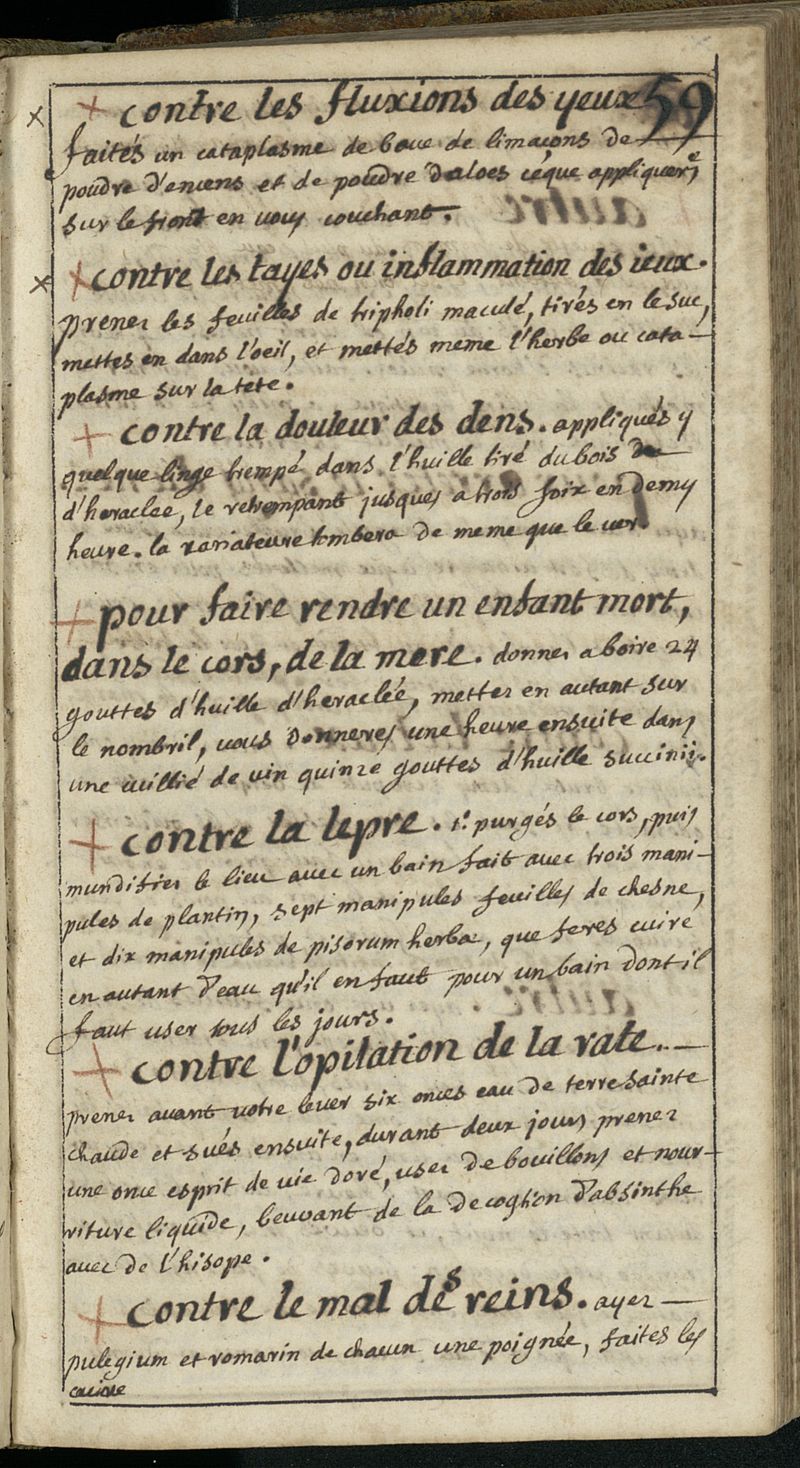 × + contre les fluxions des yeux 59
faités un cataplasme de baue de limaçons de
poudre d'encens et de poudre d'aloes ceque appliquerés
sur le front en vous couchant.
× + contre les tayes ou inflammation des ieux.
prener les feuilles de tripholi maculé, tirés en le suc,
mettes en dans l'oeil, et mettés meme l'herbe ou cata-
plasme sur la tete.
+ contre la douleur des dens. appliqués y
quelque linge trempé dans l'huille tiré du bois
d'heraclee, le retrempant jusques a trois foix en demy
heure. la tombera de meme que le ver.
+ pour faire rendre un enfant mort,
dans le cors, de la mere. donner a boire 24
gouttes d'huille d'heraclée, metter en autant sur
le nombril, vous donneres une heure ensuite dans
une cuillié de vin quinze gouttes d'huille succinii.
+ contre la lepre. 1.º purgés le cors, puis
mundifier le lieu avec un bain fait avec trois mani-
pules de plantin, sept manipules feuilles de chesne,
et dix manipules de pisorum herbæ, que feres cuire
en autant d'eau qu'il en faut pour un bain dont il
faut user tous les jours.
+ contre l'opilation de la rate. —
prener avant votre lever six onces eau de terre sainte
chaude et sués ensuite, durant deux jours prener
une once esprit de vie doré, user de bouillons et nour-
riture liquide, beuvant de la decogtion d'absinthe
avec de l'hisope.
+ contre le mal des reins. ayer —
pulegium et romarin de chacun une poignée, faites les
cuire